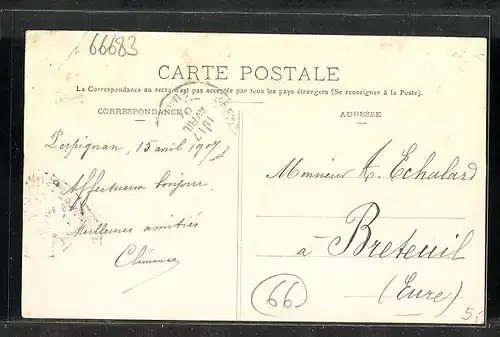 66683
CARTE POSTALE
La Correspondance au recto n'est pas acceptée par tous les pays étrangers (Se renseigner à la Poste).
CORRESPONDANCE
ADRESSE
AVRIL
Perpignan, 15 avril 1907
Affectueux bonjour.
Meilleures amitiés
Clémence
Monsieur A. Echalard
à Breteuil
(Eure)
66
5,